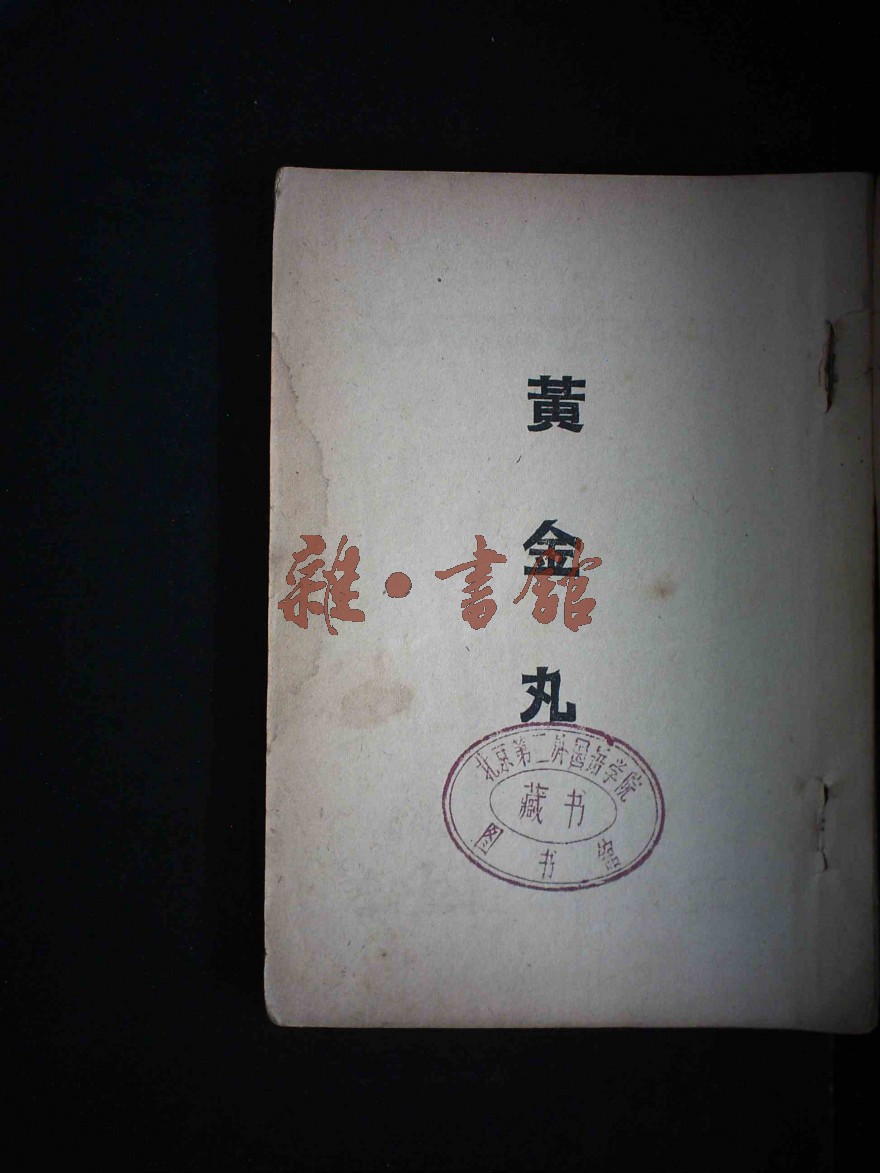 黃金丸
雜·書館
北京第二外国语学院
藏书
图书馆